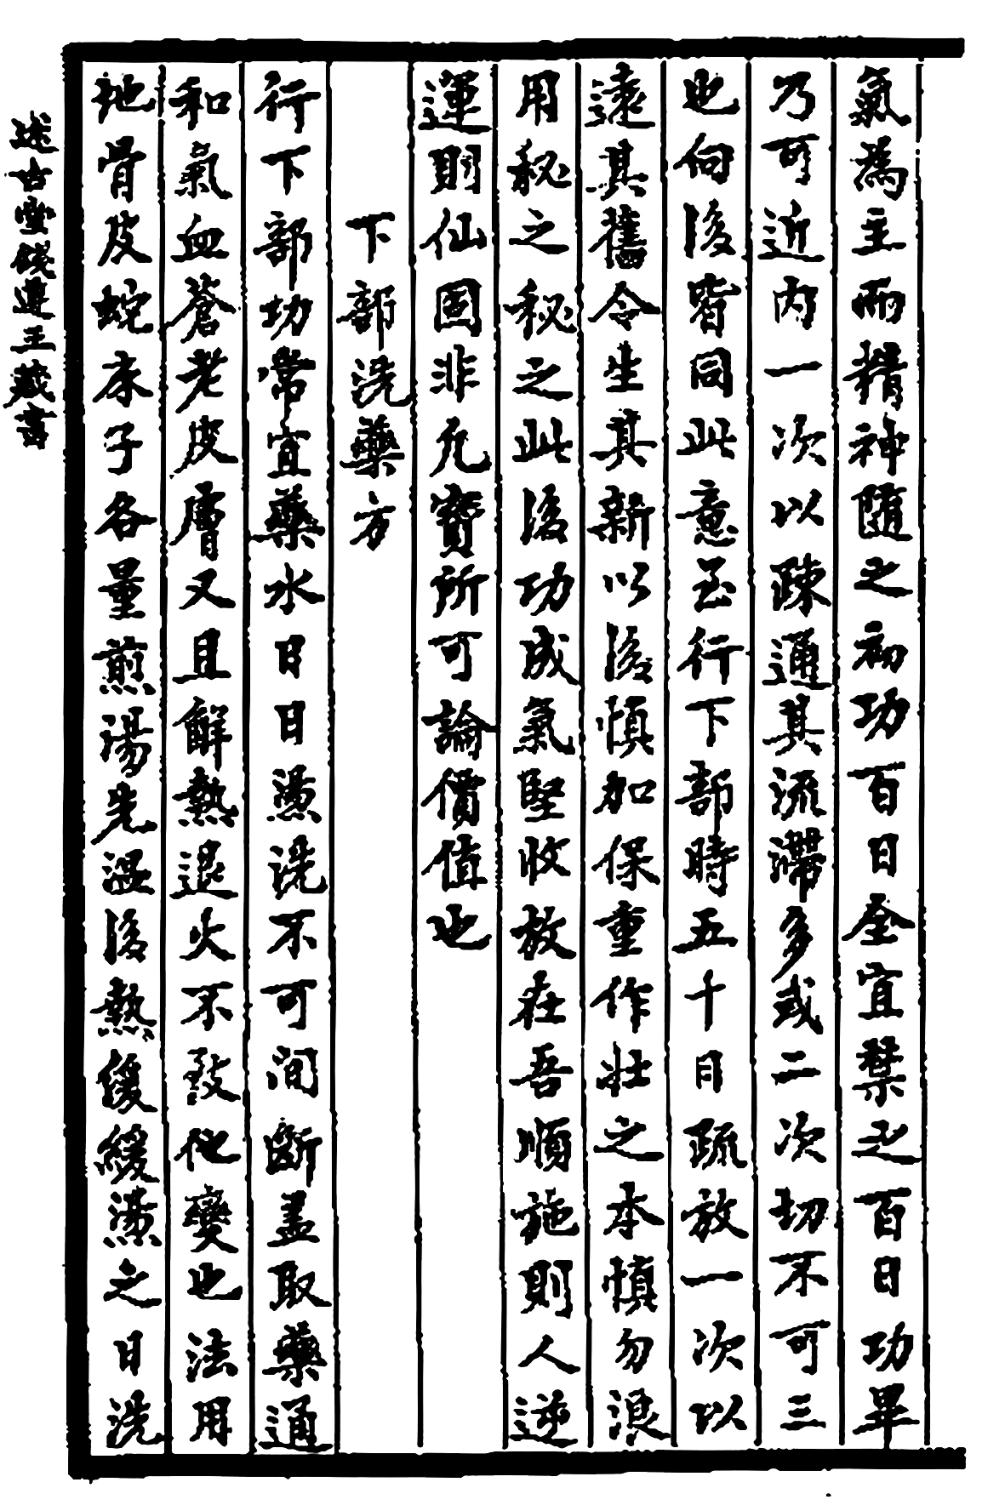 氣為主而精神随之初功百日全宜禁之百日功畢
乃可近内一次以踈通其流滯多或二次切不可三
也向後皆同此意至行下部時五十日疏放一次以
遠其舊令生其新以後慎加保重作壯之本慎勿浪
用秘之秘之此後功成氣堅收放在吾順施則人逆
運則仙固非凢寶所可論價值也
下部洗藥方
行下部功常宜藥水日日燙洗不可间断盖取藥通
和氣血蒼老皮膚又且解熱退火不致他變也法用
地骨皮蛇床子各量煎湯先温後熱緩緩燙之日洗
述古堂錢遵王藏書